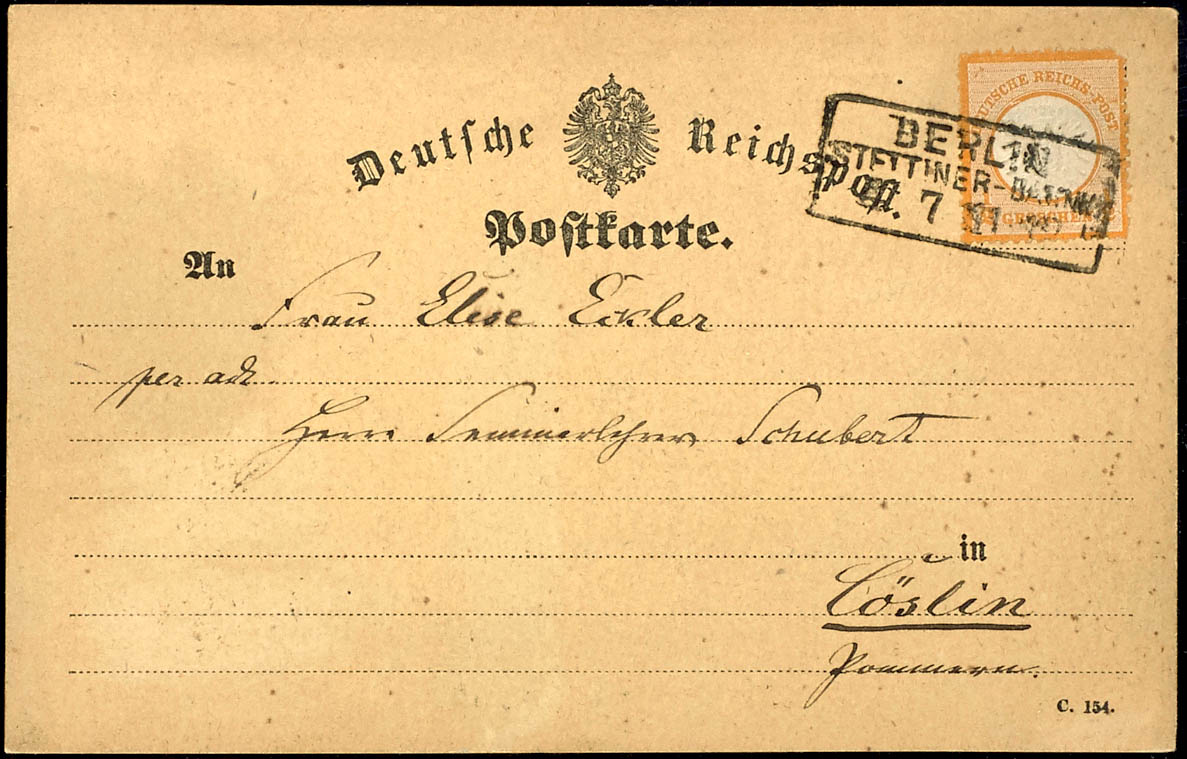 Deutsche Reichspost.
Postkarte.
DEUTSCHE REICHS-POST
GROSCHEN
BERLIN
STETTINER-BAHNH
7
An
Frau Elise Eckler
per adr.
Herrn Seminarlehrer Schubert
in
Cöslin
Pommern.
C. 154.